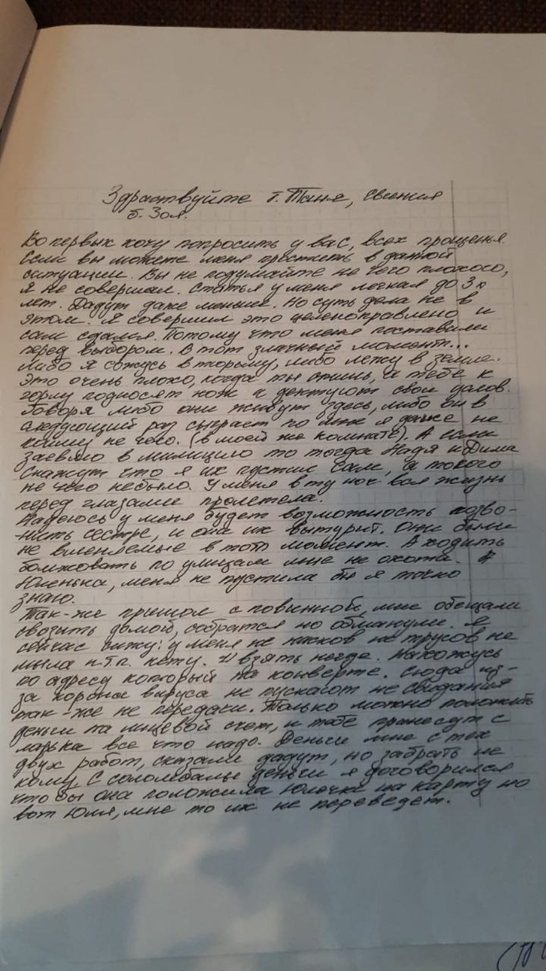 Здравствуйте т. Таня, Евгения
б. Зоя.
Во первых хочу попросить у вас, всех прощенья
Если вы можете меня простить в данной
ситуации. Вы не подумайте не чего плохого,
я не совершал. Статья у меня легкая до 3х
лет. Дадут даже меньше. Но суть дела не в
этом. Я совершил это целенаправлено и
сам сдался. Потому что меня поставили
перед выбором. В тот злачный момент...
Либо я сажусь в тюрьму, либо лежу в земле.
Это очень плохо, когда ты спишь, а тебе к
горлу подносят нож и диктуют свои
Говоря либо они живут здесь, либо он в
следующий раз сыграет по мне я даже не
не чего. (в моей же комнате). А если
заевлю в милицию то тогда Надя и Дима
скажут что я их пустил сам, а такого
не чего небыло. У меня в ту ноч вся жизнь
перед глазами пролетела.
Надеюсь у меня будет возможность позво-
нить сестре, и она их вытурит. Они были
не вменяемые в тот момент. А ходить
болмховать по улицам мне не охота.
Юленька, меня не пустила бы я точно
знаю.
Так-же пришол с повинной, мне обещали
свозить домой, собратся но обманули. Я
сейчас сижу: у меня не насков не трусов не
мыла и т.п. нету. И взять негде. Нахожусь
по адресу который на конверте. Сюда из-
за корона вируса не пускают не свидания
так-же не передачи. Только можно положить
деньги на лицевой счет, и тебе принесут с
ларька все что надо. Деньги мне с тех
двух работ, сказали дадут, но забрать не
кому. С соломбалы деньги я договорился
что бы она положила Юлочке на карту но
вот Юля, мне то их не переведет.